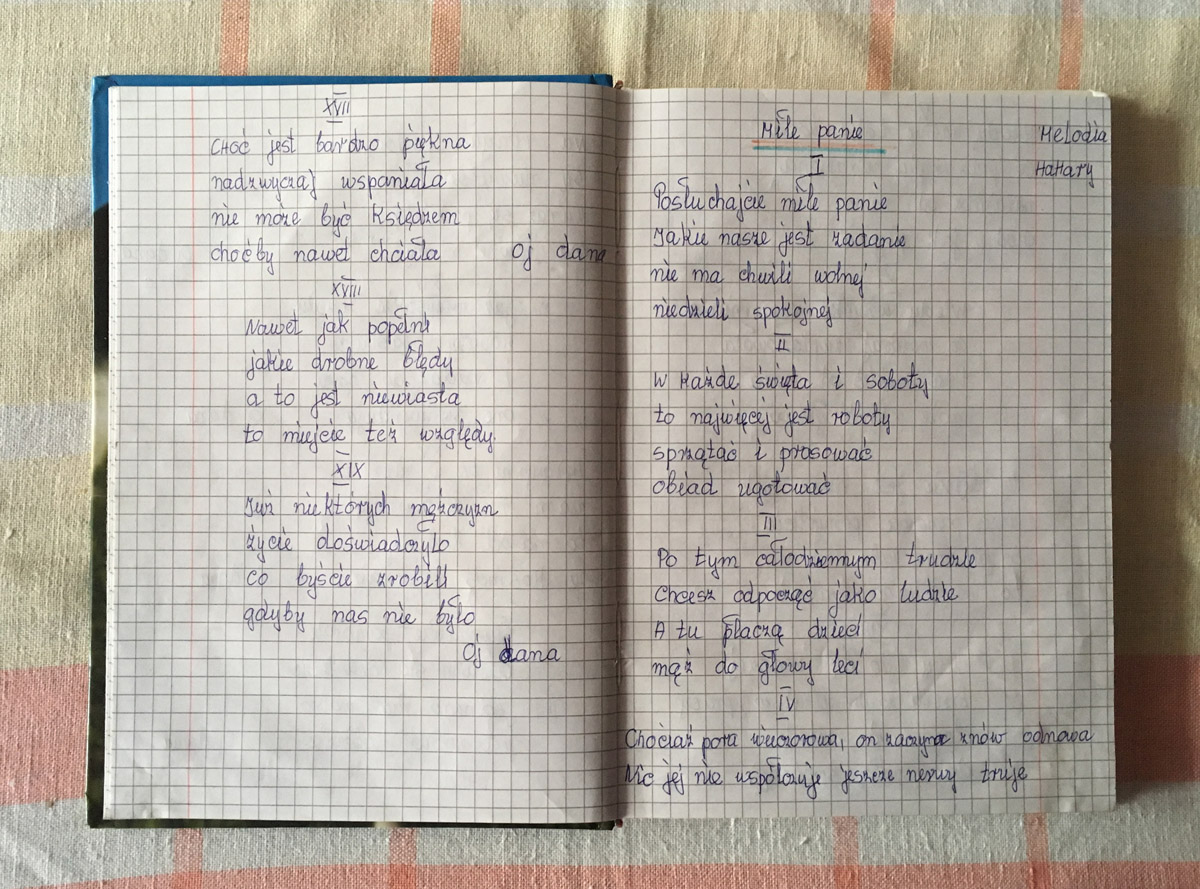 XVII
Choć jest bardzo piękna
nadzwyczaj wspaniała
nie może być Księdzem
choćby nawet chciała oj dana
XVIII
Nawet jak popełni
jakie drobne błędy
a to jest niewiasta
to miejcie też względy.
XIX
Już niektórych mężczyzn
życie doświadczyło
co byście zrobili
gdyby nas nie było
Oj dana
Miłe panie
Melodia
Hahary
I
Posłuchajcie miłe panie
Jakie nasze jest zadanie
nie ma chwili wolnej
niedzieli spokojnej
II
W każde święta i soboty
to najwięcej jest roboty
sprzątać i prasować
obiad ugotować
III
Po tym całodziennym trudzie
Chcesz odpocząć jako ludzie
A tu płaczą dzieci
mąż do głowy leci
IV
Chociaż pora wieczorowa, on zaczyna znów odnowa
Nic jej nie współczuje jeszcze nerwy truje